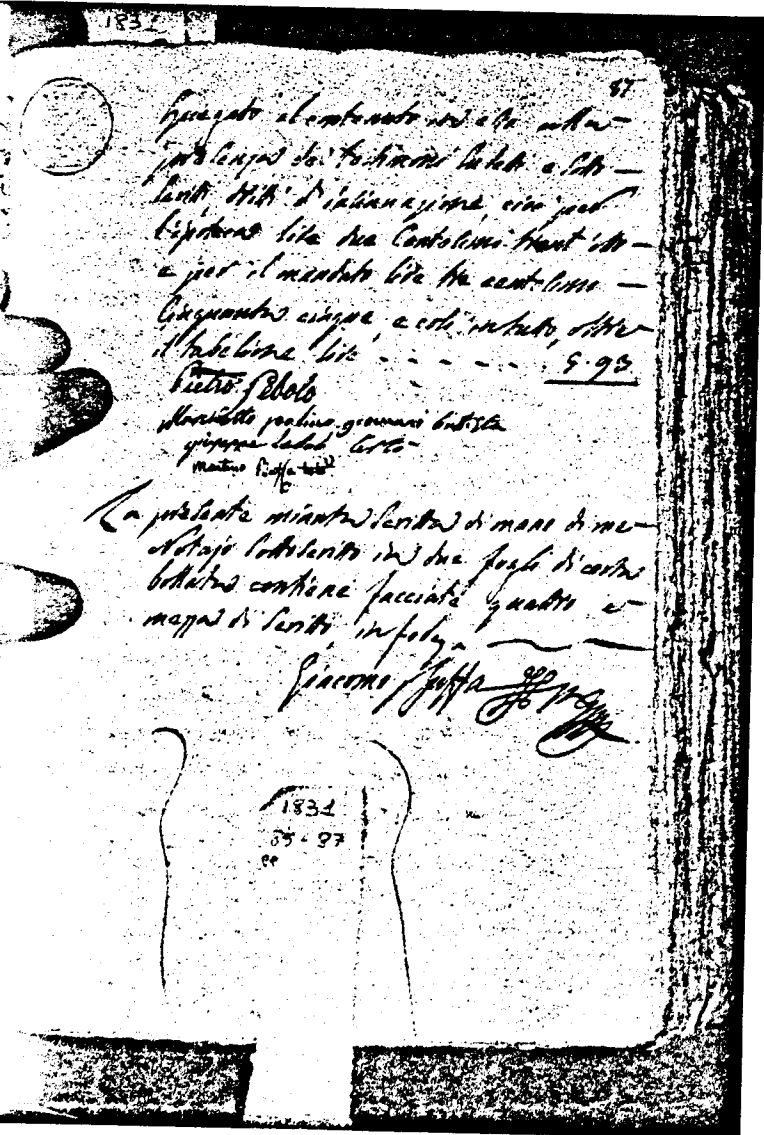 1831
87
Spiegato il contenuto in esso nella
presenza dei testimoni sudetti e sotto
scritti dritti d'insinuazione, cioè per
l'ipoteca lire due Centesimi trent'otto
e per il mandato lire tre centesimi
Cinquanta cinque, e così in tutto, oltre
il tabellione lire - - - - - 5.93
Pietro Sibolo
paolino giovanni batista
giuseppe testo
martino Piaffa test
La presente minuta scritta di mano di me
Notajo sottoscritto in due fogli di carta
bollata contiene facciate quattro e
mezza di scritto in fede
Giacomo Piaffa
1831
85-87